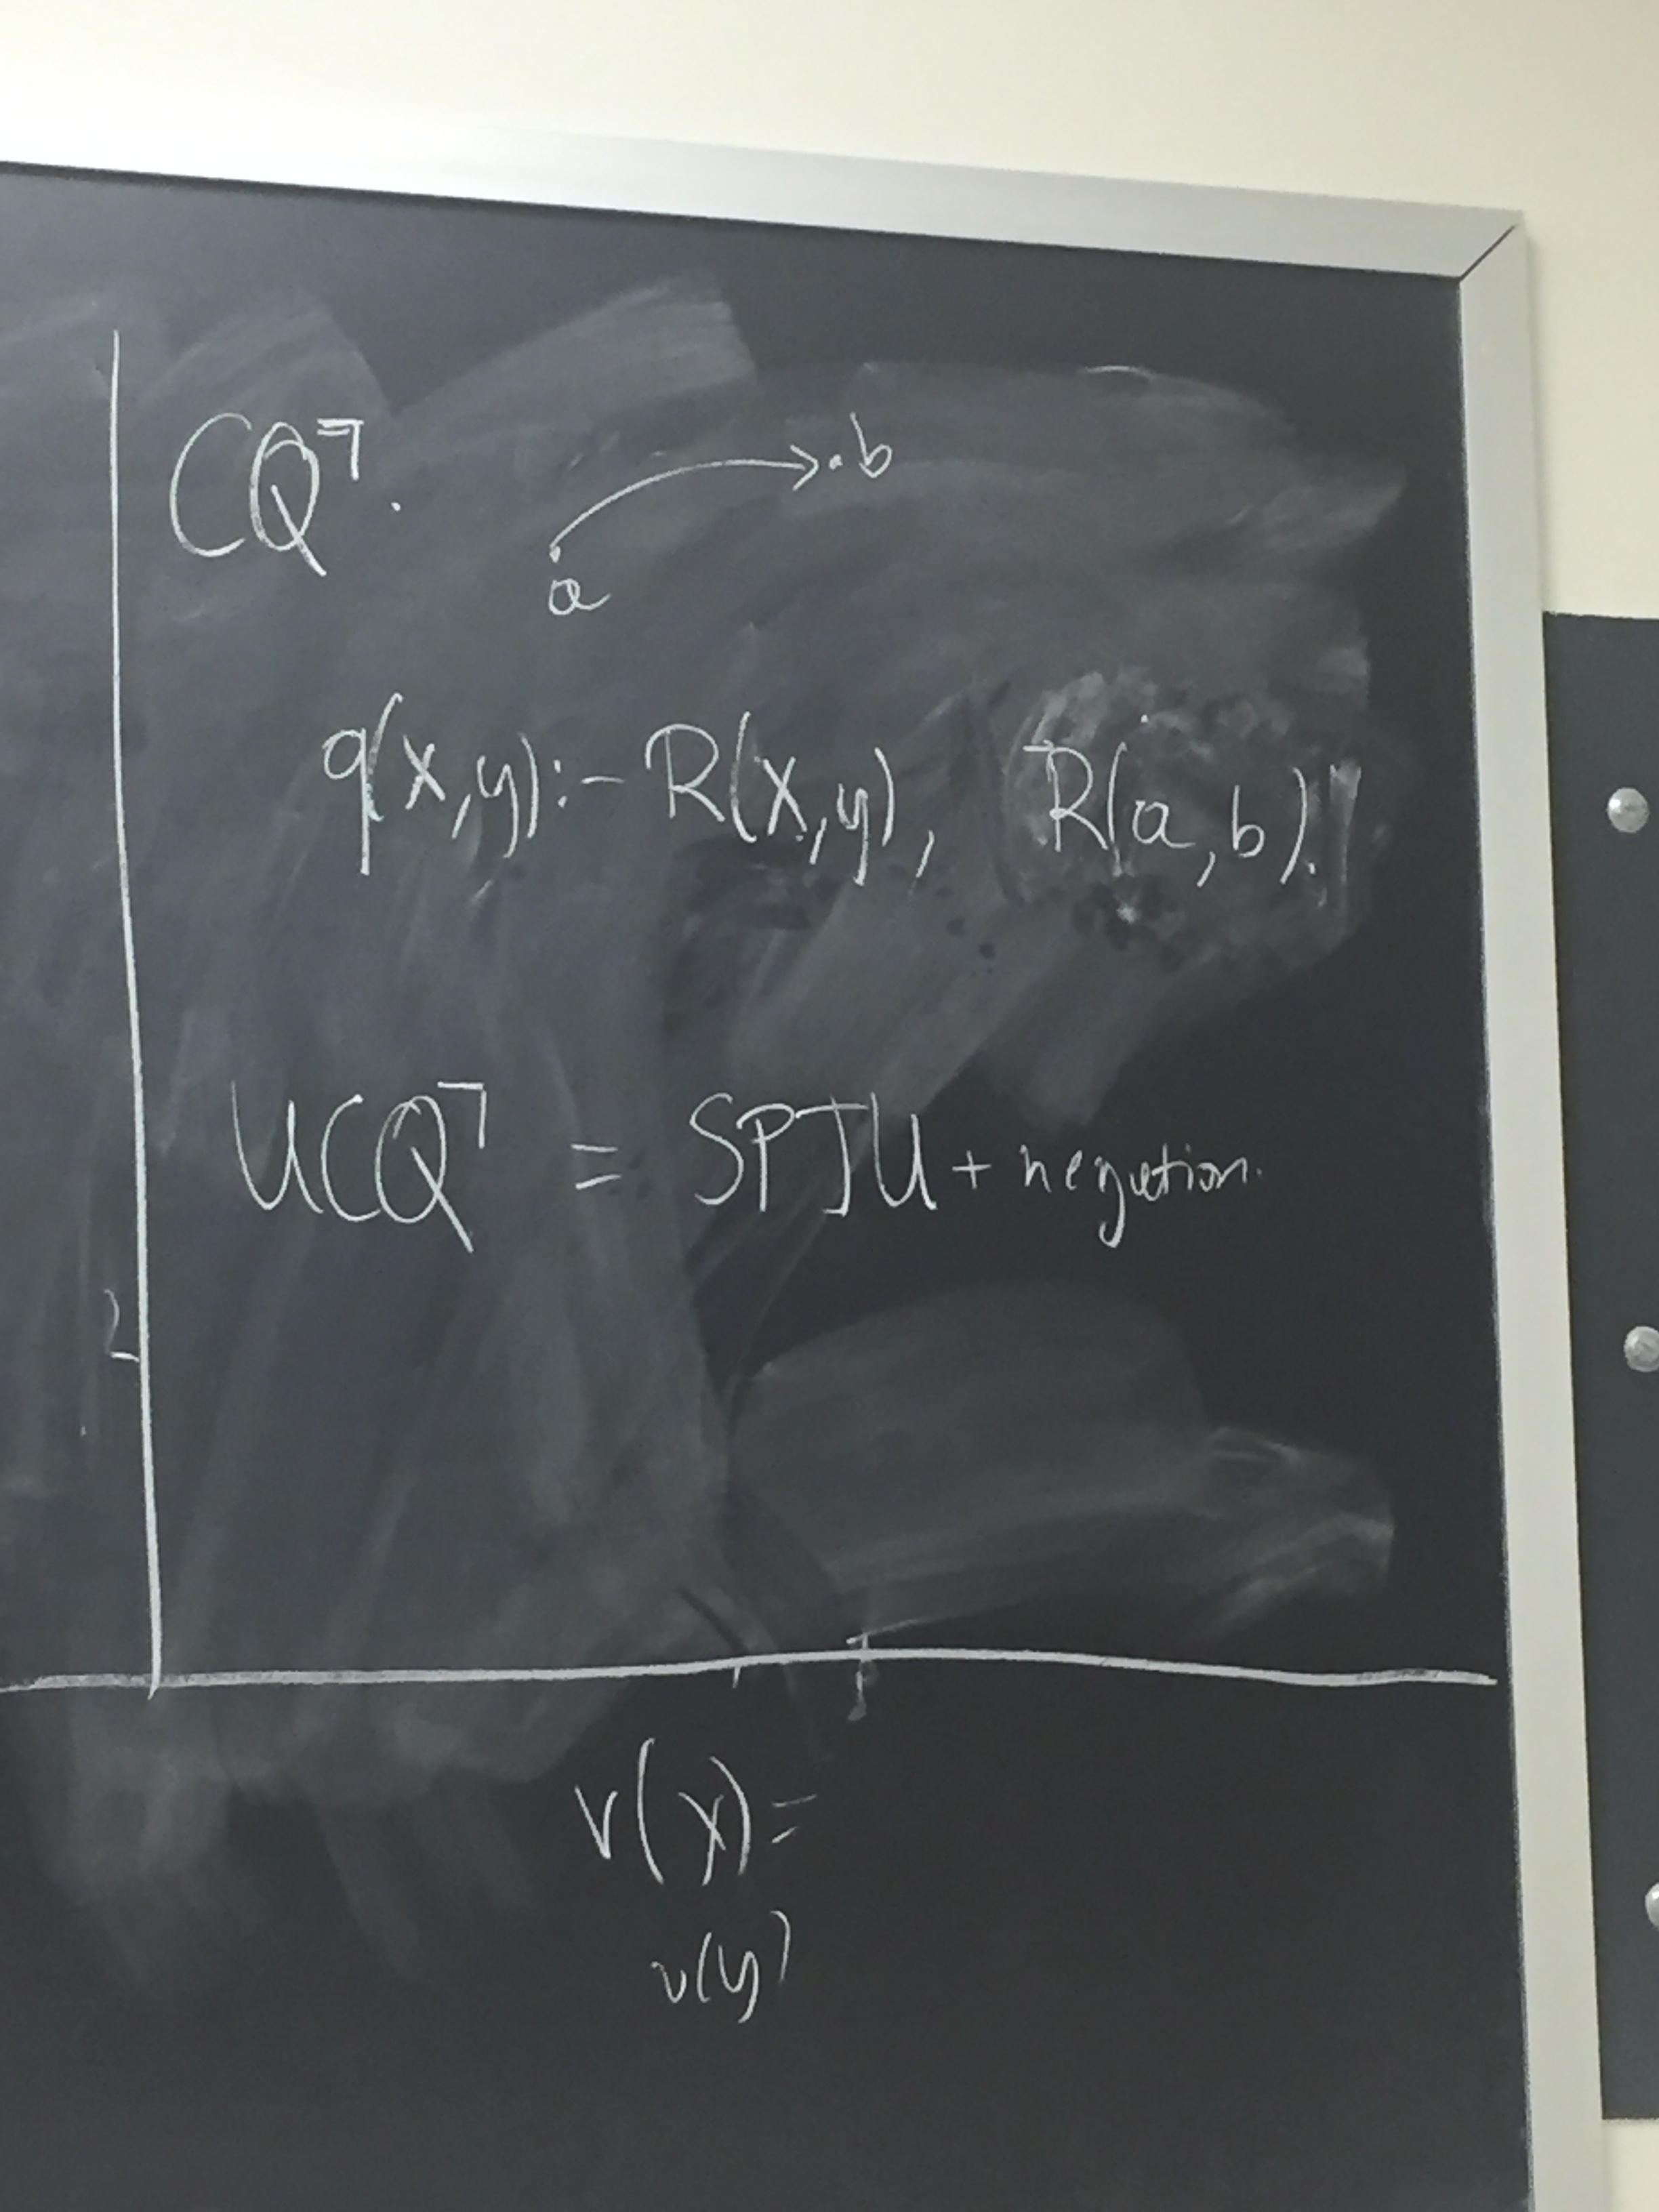 CQ¬.
b
a
q(x,y):- R(x,y), ¬R(a,b).
UCQ¬ = SPJU + negation.
v(x)=
v(y)